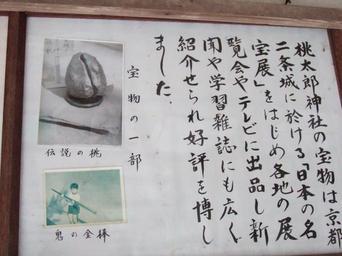 桃太郎神社の宝物は京都
二条城に於ける「日本の名
宝展」をはじめ各地の展
覧会やテレビに出品し新
聞や学習雑誌にも広く
紹介せられ好評を博し
ました。
宝物の一部
伝説の桃
鬼の金棒